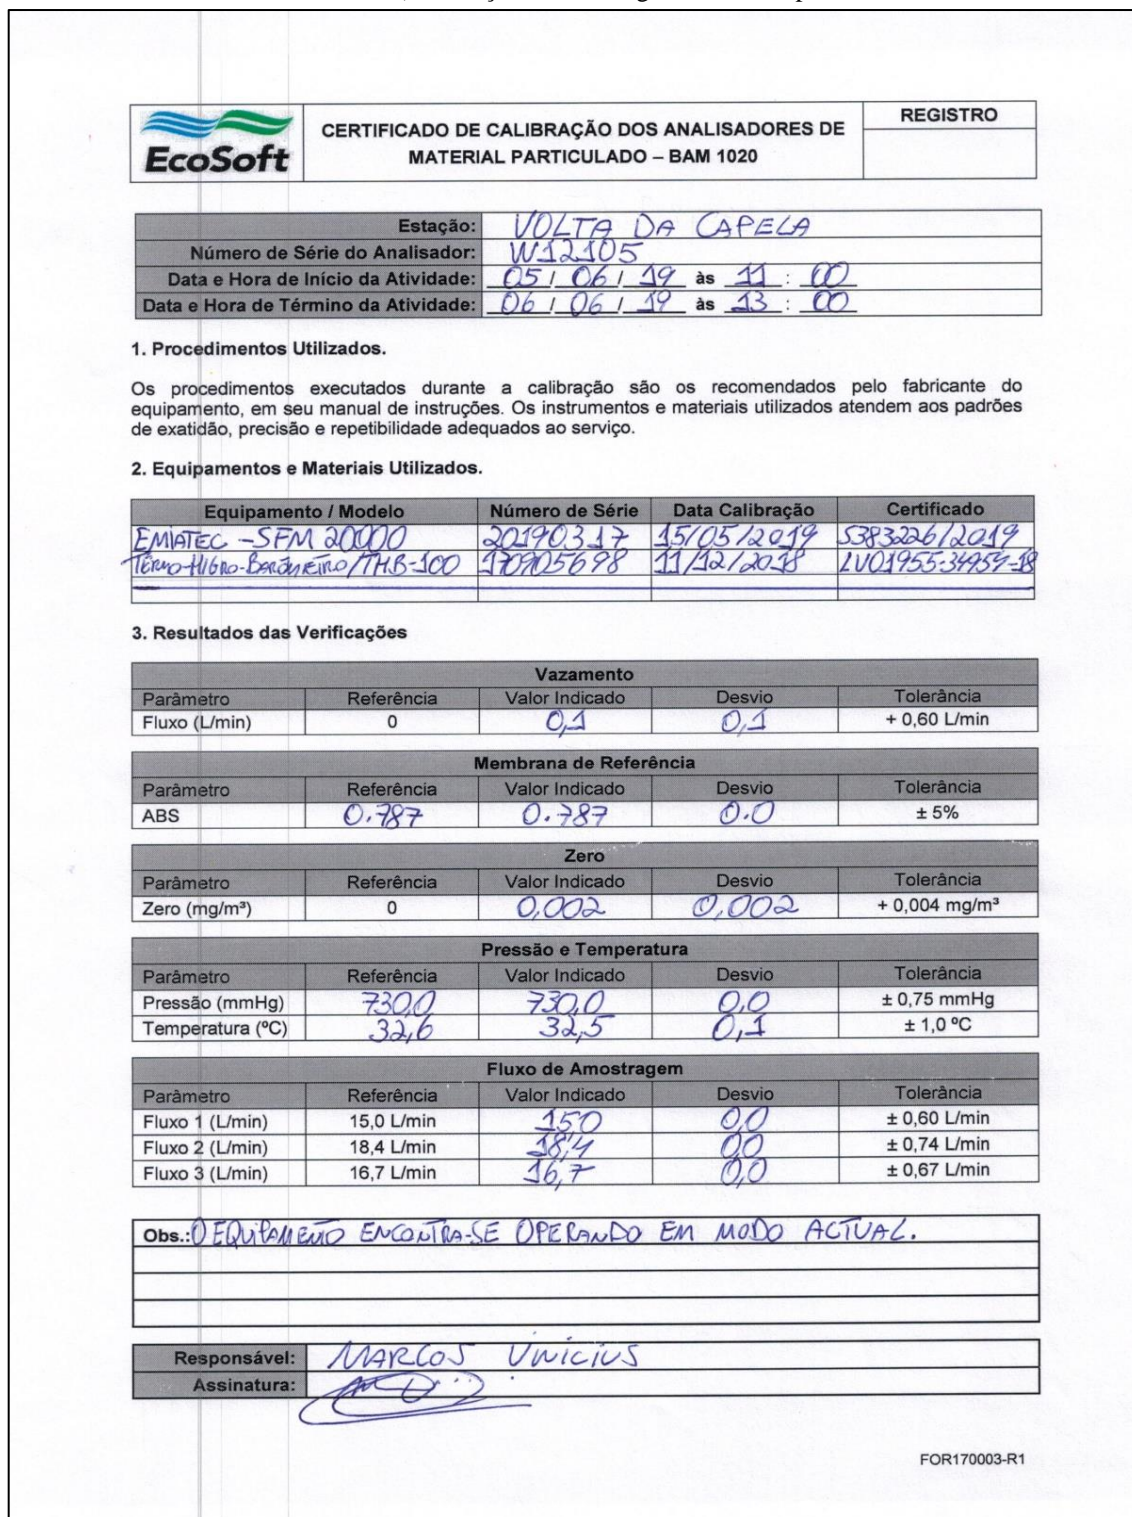 EcoSoft
CERTIFICADO DE CALIBRAÇÃO DOS ANALISADORES DE
MATERIAL PARTICULADO – BAM 1020
REGISTRO
Estação: VOLTA DA CAPELA
Número de Série do Analisador: W12105
Data e Hora de Início da Atividade: 05 / 06 / 19 às 11 : 00
Data e Hora de Término da Atividade: 06 / 06 / 19 às 13 : 00
1. Procedimentos Utilizados.
Os procedimentos executados durante a calibração são os recomendados pelo fabricante do
equipamento, em seu manual de instruções. Os instrumentos e materiais utilizados atendem aos padrões
de exatidão, precisão e repetibilidade adequados ao serviço.
2. Equipamentos e Materiais Utilizados.
Equipamento / Modelo Número de Série Data Calibração Certificado
EMIATEC - SFM 20000 20190317 15/05/2019 S383226/2019
TERMO-HIGRO-BARÔMETRO/THB-100 170905698 11/12/2018 LV01955-34959-18
3. Resultados das Verificações
Vazamento
Parâmetro Referência Valor Indicado Desvio Tolerância
Fluxo (L/min) 0 0,1 0,1 + 0,60 L/min
Membrana de Referência
Parâmetro Referência Valor Indicado Desvio Tolerância
ABS 0.787 0.787 0.0 ± 5%
Zero
Parâmetro Referência Valor Indicado Desvio Tolerância
Zero (mg/m³) 0 0,002 0,002 + 0,004 mg/m³
Pressão e Temperatura
Parâmetro Referência Valor Indicado Desvio Tolerância
Pressão (mmHg) 730,0 730,0 0,0 ± 0,75 mmHg
Temperatura (ºC) 32,6 32,5 0,1 ± 1,0 ºC
Fluxo de Amostragem
Parâmetro Referência Valor Indicado Desvio Tolerância
Fluxo 1 (L/min) 15,0 L/min 15,0 0,0 ± 0,60 L/min
Fluxo 2 (L/min) 18,4 L/min 18,4 0,0 ± 0,74 L/min
Fluxo 3 (L/min) 16,7 L/min 16,7 0,0 ± 0,67 L/min
Obs.: O EQUIPAMENTO ENCONTRA-SE OPERANDO EM MODO ACTUAL.
Responsável: MARCOS VINICIUS
Assinatura:
FOR170003-R1